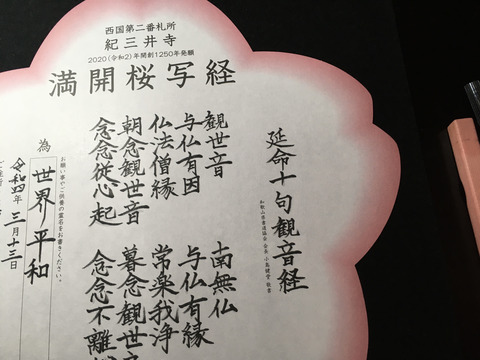 西国第二番札所
紀三井寺
2020(令和2)年開創1250年発願
満開桜写経
延命十句観音経
和歌山県書道協会 会長 小島健堂 敬書
観世音 南無仏
与仏有因 与仏有縁
仏法僧縁 常楽我浄
朝念観世音 暮念観世音
念念従心起 念念不離
お願い事やご供養の霊名をお書きください。
為 世界平和
令和四年 三月十三日